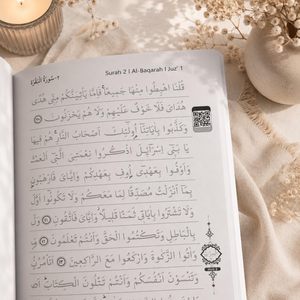 ٢- سُورَةُ البَقَرَة
Surah 2 | Al-Baqarah | Juz' 1
قُلْنَا اهْبِطُوا مِنْهَا جَمِيعًا فَإِمَّا يَأْتِيَنَّكُم مِّنِّي هُدًى
هُدَايَ فَلَا خَوْفٌ عَلَيْهِمْ وَلَا هُمْ يَحْزَنُونَ
وَكَذَّبُوا بِآيَاتِنَا أُولَٰئِكَ أَصْحَابُ النَّارِ هُمْ فِيهَا
يَا بَنِي إِسْرَائِيلَ اذْكُرُوا نِعْمَتِيَ الَّتِي أَنْعَمْتُ
وَأَوْفُوا بِعَهْدِي أُوفِ بِعَهْدِكُمْ وَإِيَّايَ فَارْهَبُونِ
بِمَا أَنزَلْتُ مُصَدِّقًا لِّمَا مَعَكُمْ وَلَا تَكُونُوا أَوَّلَ
وَلَا تَشْتَرُوا بِآيَاتِي ثَمَنًا قَلِيلًا وَإِيَّايَ فَاتَّقُونِ وَلَا
بِالْبَاطِلِ وَتَكْتُمُوا الْحَقَّ وَأَنتُمْ تَعْلَمُونَ
وَآتُوا الزَّكَاةَ وَارْكَعُوا مَعَ الرَّاكِعِينَ أَتَأْمُرُونَ
وَتَنسَوْنَ أَنفُسَكُمْ وَأَنتُمْ تَتْلُونَ الْكِتَابَ